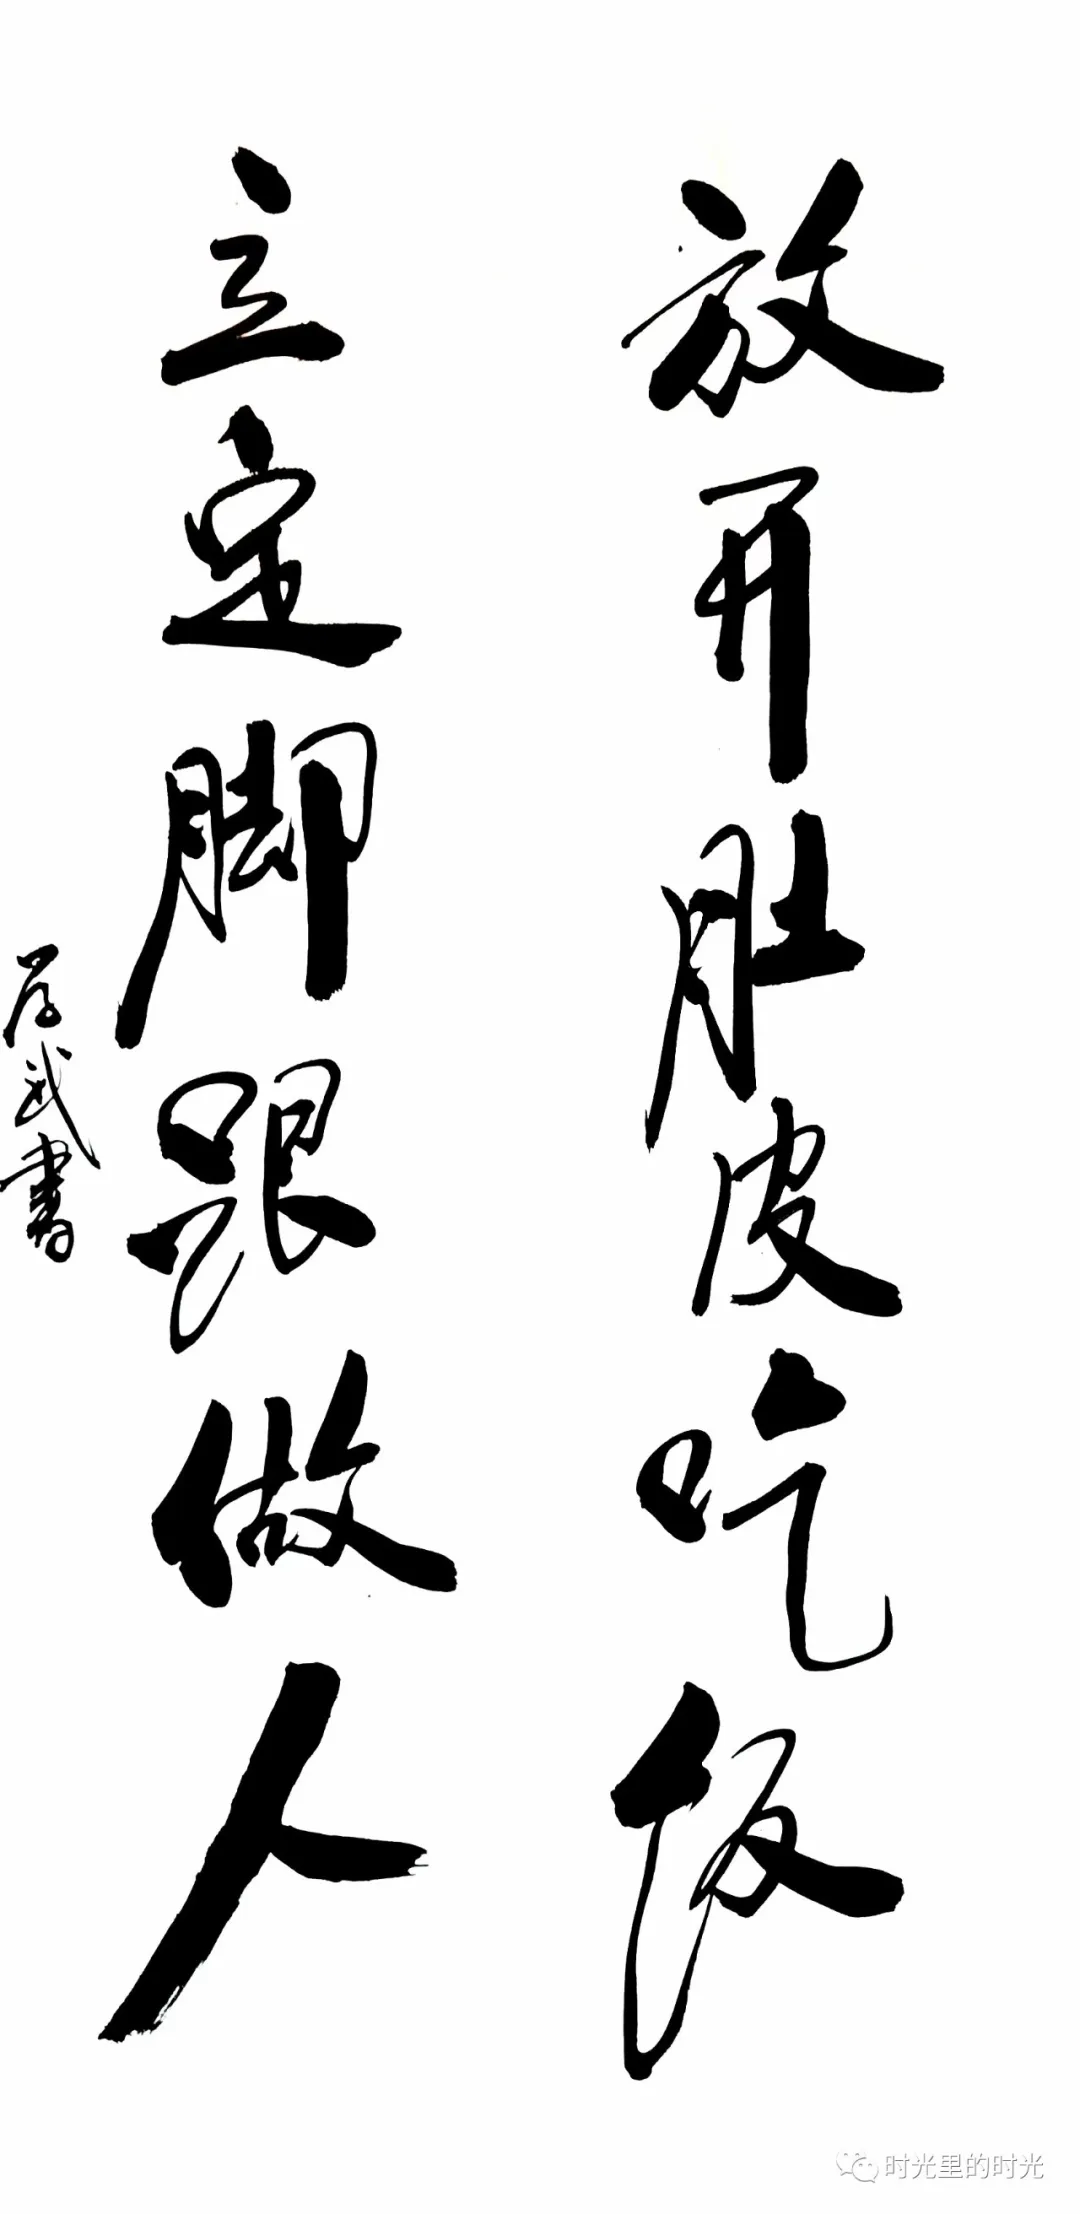 放开肚皮吃饭
立定脚跟做人
武书
时光里的时光